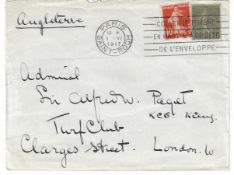 Angleterre
PARIS
1917
DE L'ENVELOPPE
Admiral
Sir Alfred W. Paget
KCB
Turf Club
Clarges Street. London. W